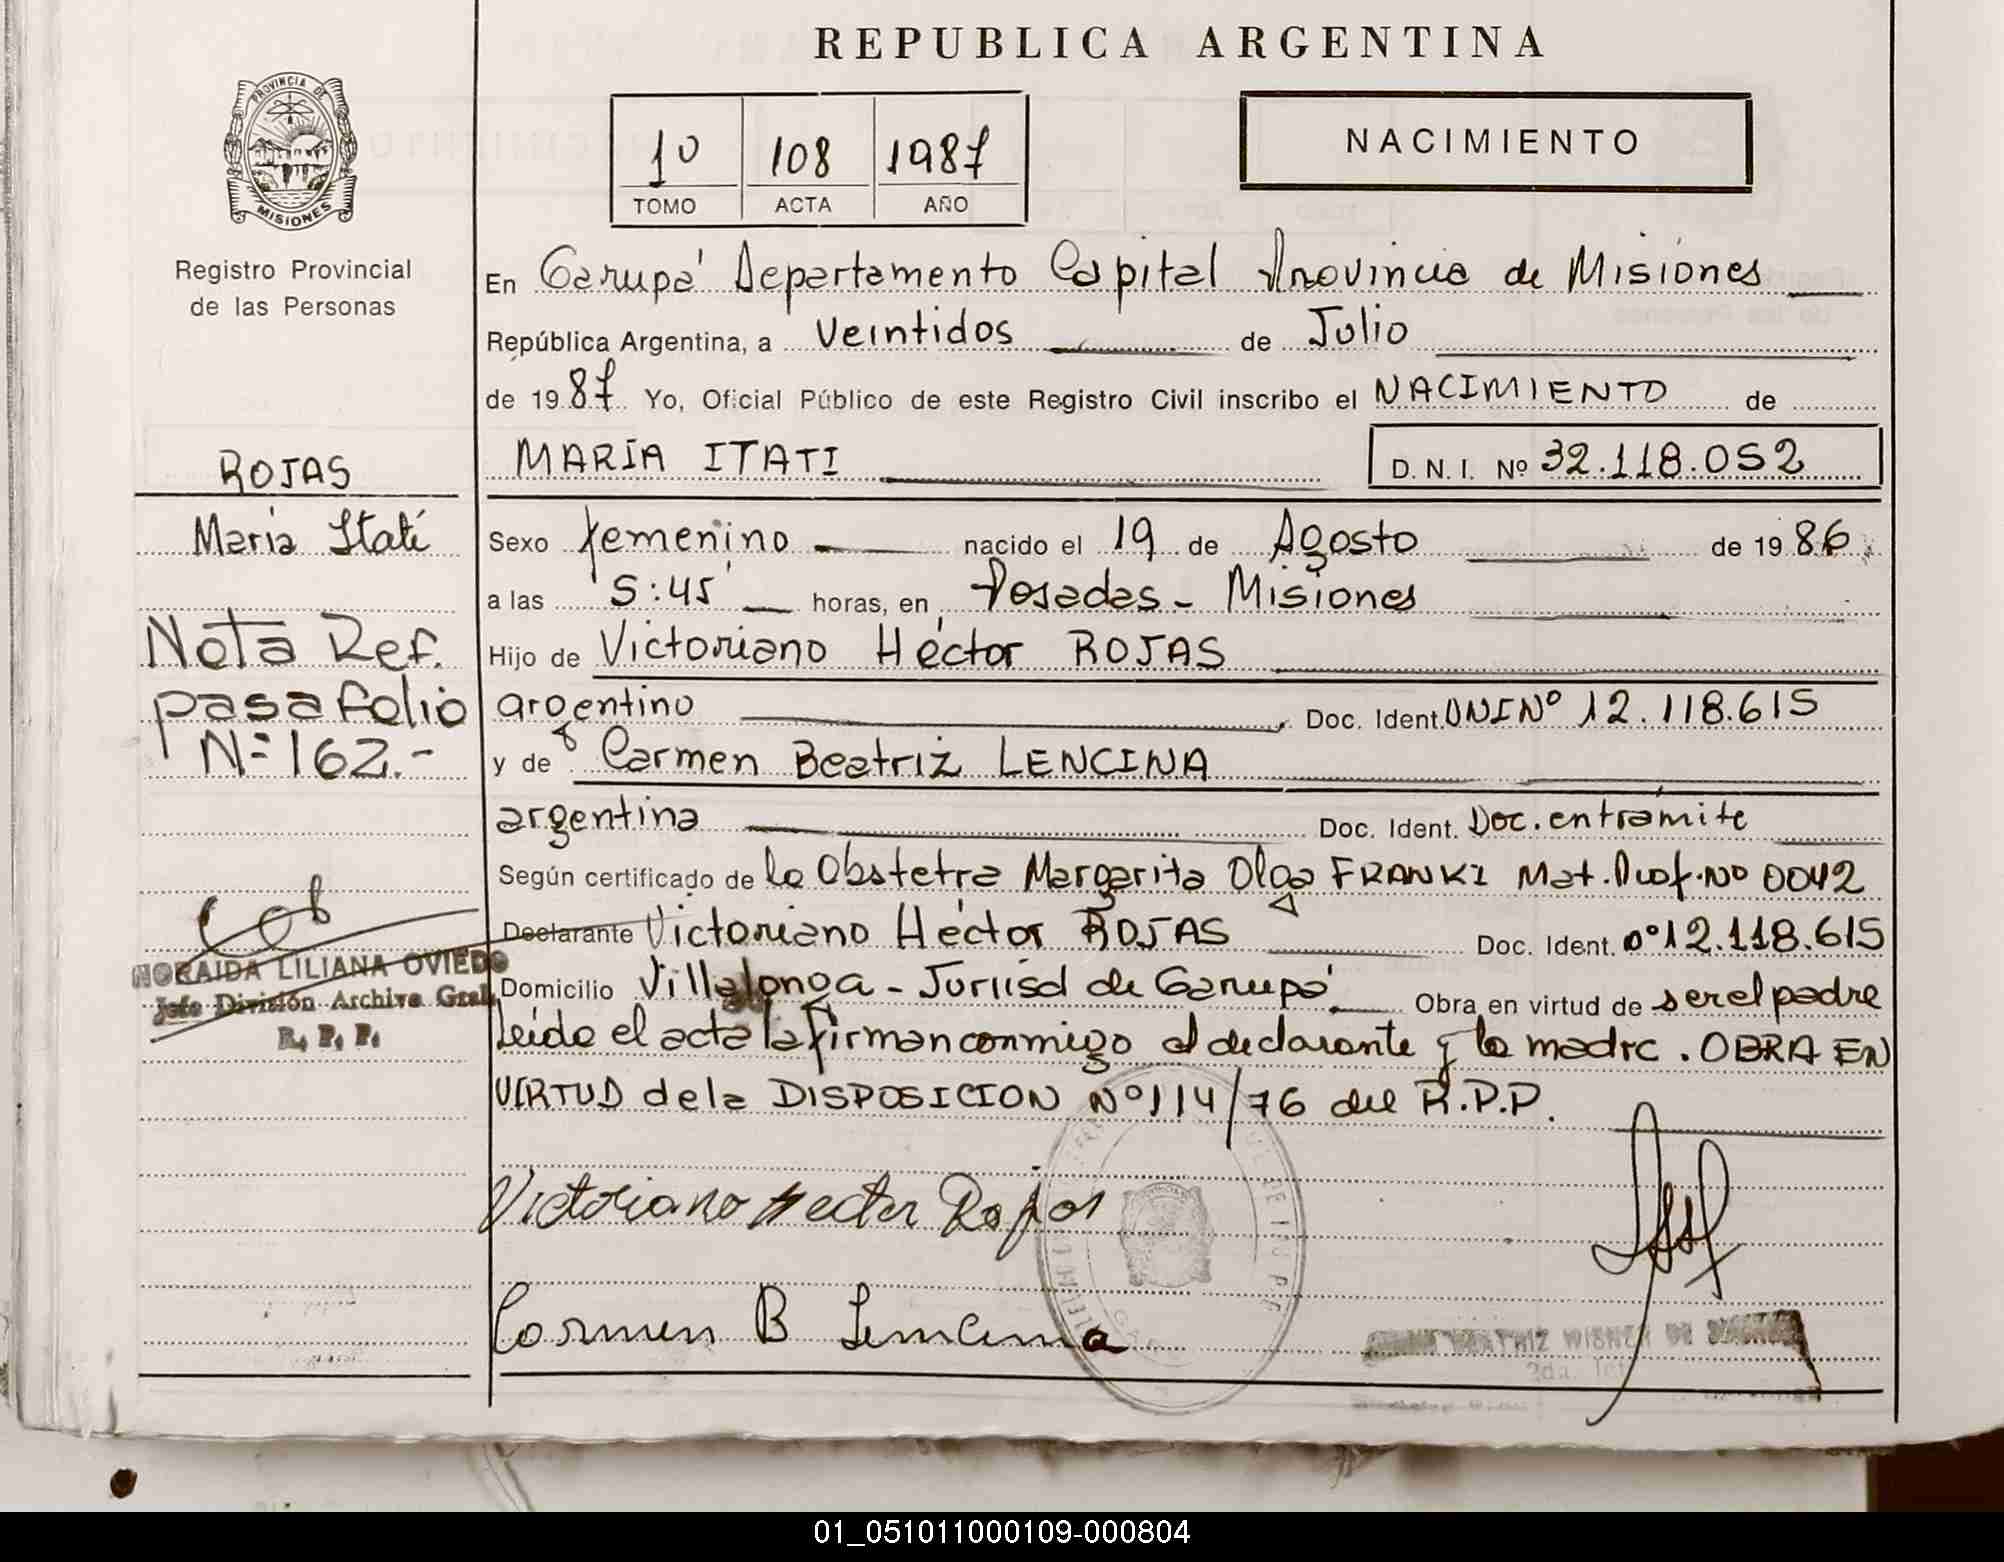 REPUBLICA ARGENTINA
PROVINCIA DE
MISIONES
Registro Provincial
de las Personas
1º 108 1987
TOMO ACTA AÑO
NACIMIENTO
En Garupá Departamento Capital Provincia de Misiones
República Argentina, a Veintidos de Julio
de 1987 Yo, Oficial Público de este Registro Civil inscribo el NACIMIENTO de
MARÍA ITATI D. N. I. Nº 32.118.052
Sexo femenino nacido el 19 de Agosto de 1986
a las 5:45 horas, en Posadas - Misiones
Hijo de Victoriano Héctor ROJAS
argentino Doc. Ident. DNI Nº 12.118.615
y de Carmen Beatriz LENCINA
argentina Doc. Ident. Doc. en trámite
Según certificado de la Obstetra Margarita Olga FRANKI Mat. Prof. Nº 0042
Declarante Victoriano Héctor ROJAS Doc. Ident. Nº 12.118.615
Domicilio Villalonga - Jurisd de Garupá Obra en virtud de ser el padre
Leída el acta la firman conmigo el declarante y la madre. OBRA EN
VIRTUD de la DISPOSICION Nº 114/76 del R.P.P.
Victoriano Hector Rojas
Carmen B Lencina
BEATRIZ WISNER DE
ROJAS
María Itatí
Nota Ref.
pasa folio
Nº 162.-
NORAIDA LILIANA OVIEDO
Jefe División Archivo Gral.
R. P. P.
01_051011000109-000804